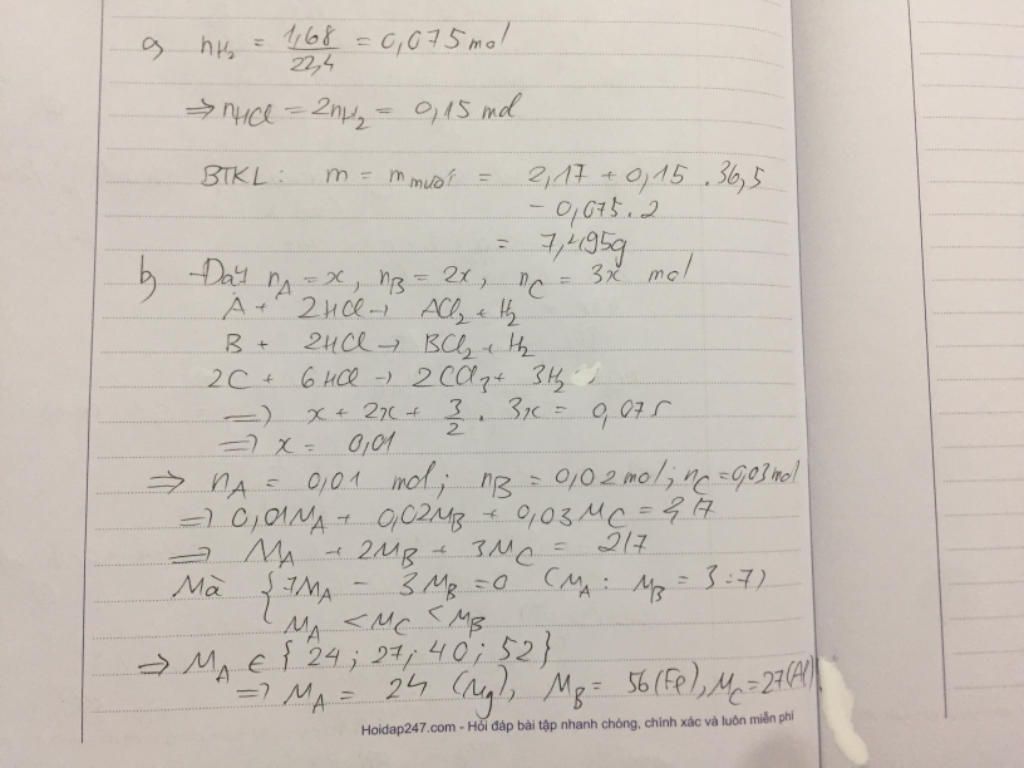 a) nH₂ = 1,68/22,4 = 0,075 mol
⇒ nHCl = 2nH₂ = 0,15 mol
BTKL: m = m muối = 2,17 + 0,15 . 36,5
- 0,075 . 2
= 7,495g
b) Đặt nA = x, nB = 2x, nC = 3x mol
A + 2HCl → ACl₂ + H₂
B + 2HCl → BCl₂ + H₂
2C + 6HCl → 2CCl₃ + 3H₂
⇒ x + 2x + 3/2 . 3x = 0,075
⇒ x = 0,01
⇒ nA = 0,01 mol; nB = 0,02 mol; nC = 0,03 mol
⇒ 0,01MA + 0,02MB + 0,03MC = 2,17
⇒ MA + 2MB + 3MC = 217
Mà { 7MA - 3MB = 0 (MA : MB = 3:7)
MA < MC < MB
⇒ MA ∈ {24; 27; 40; 52}
⇒ MA = 24 (Mg), MB = 56(Fe), MC = 27(Al).
Hoidap247.com - Hỏi đáp bài tập nhanh chóng, chính xác và luôn miễn phí